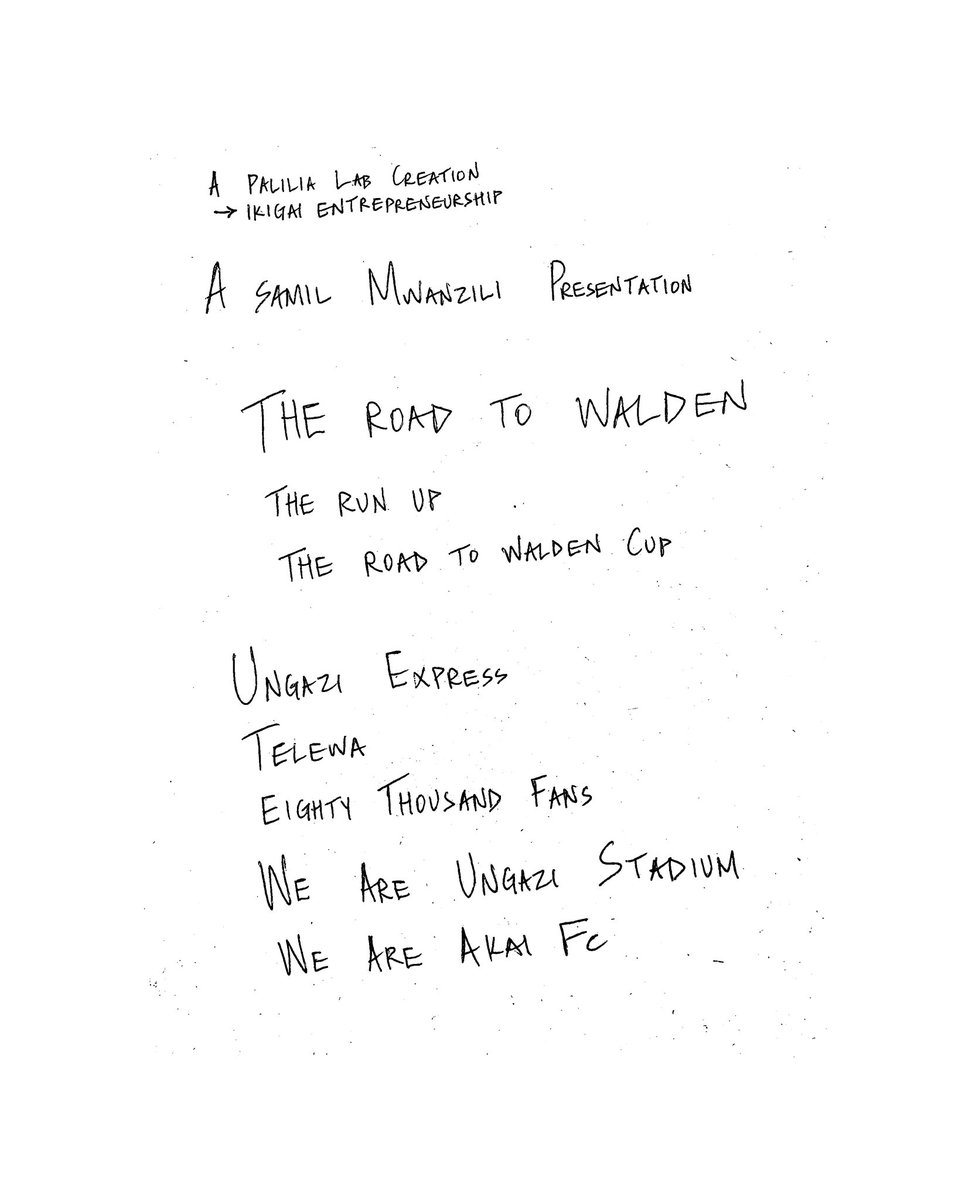 A PALILIA LAB CREATION
→ IKIGAI ENTREPRENEURSHIP
A SAMIL MWANZILI PRESENTATION
THE ROAD TO WALDEN
THE RUN UP
THE ROAD TO WALDEN CUP
UNGAZI EXPRESS
TELEWA
EIGHTY THOUSAND FANS
WE ARE UNGAZI STADIUM
WE ARE AKAI FC